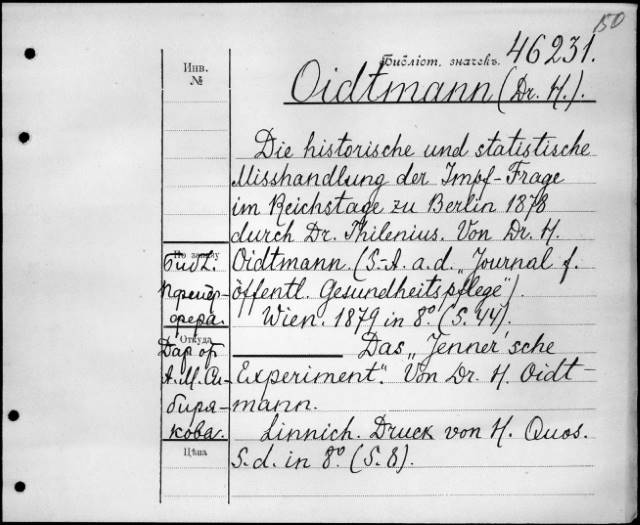 150
Библіот. значекъ. 46231.
Инв.
№
Oidtmann (Dr. H.).
Die historische und statistische
Misshandlung der Impf-Frage
im Reichstage zu Berlin 1878
durch Dr. Thilenius. Von Dr. H.
Oidtmann (S.-A. a. d. „Journal f.
öffentl. Gesundheitspflege").
Wien. 1879 in 8º. (S. 44).
Das „Jenner'sche
Experiment". Von Dr. H. Oidt-
mann.
Linnich. Druck von H. Quos.
S. d. in 8º. (S. 8).
По заказу
Библ.
Откуда
Дар от
А. М. Си-
биря-
кова.
Цѣна